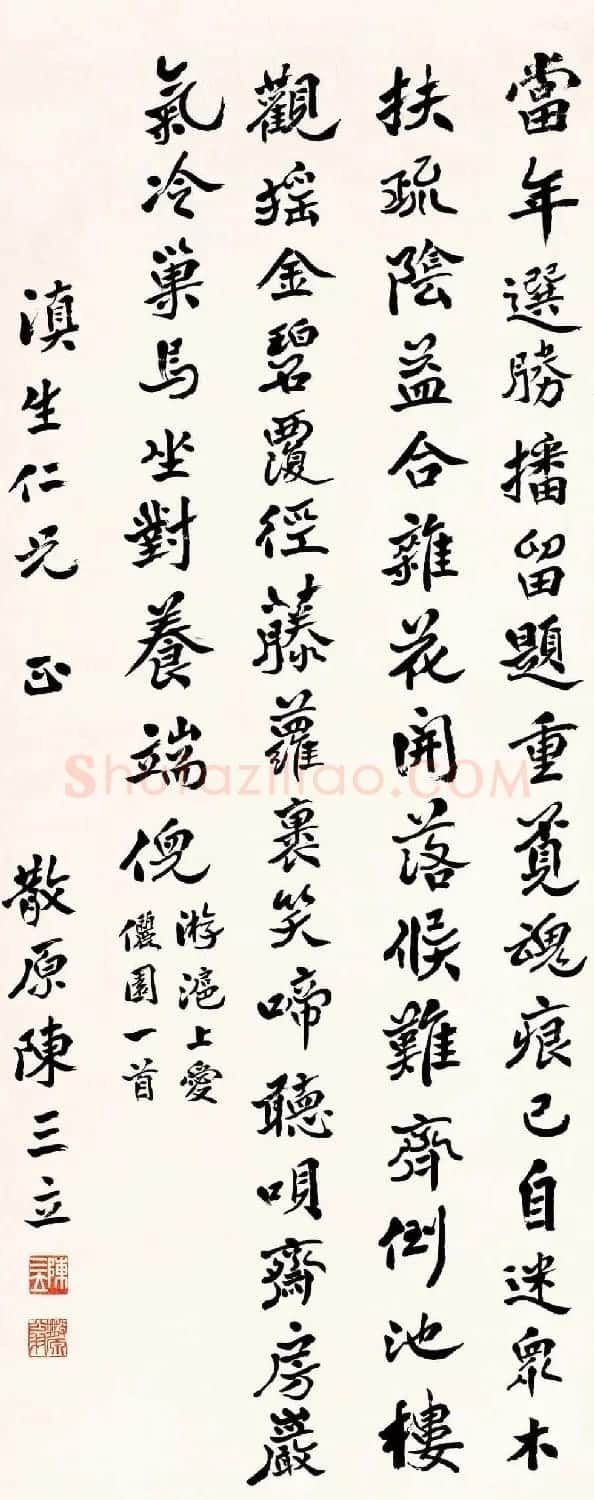 當年選勝播留題重覓魂痕已自迷衆木
扶疏陰益合雜花開落候難齊倒池樓
觀搖金碧覆徑藤蘿裹笑啼聽唄齋房嚴
氣冷巢烏坐對養端倪
游滬上愛
儷園一首
滇生仁兄 正 散原陳三立
陳三立
ShufaziLiao.COM